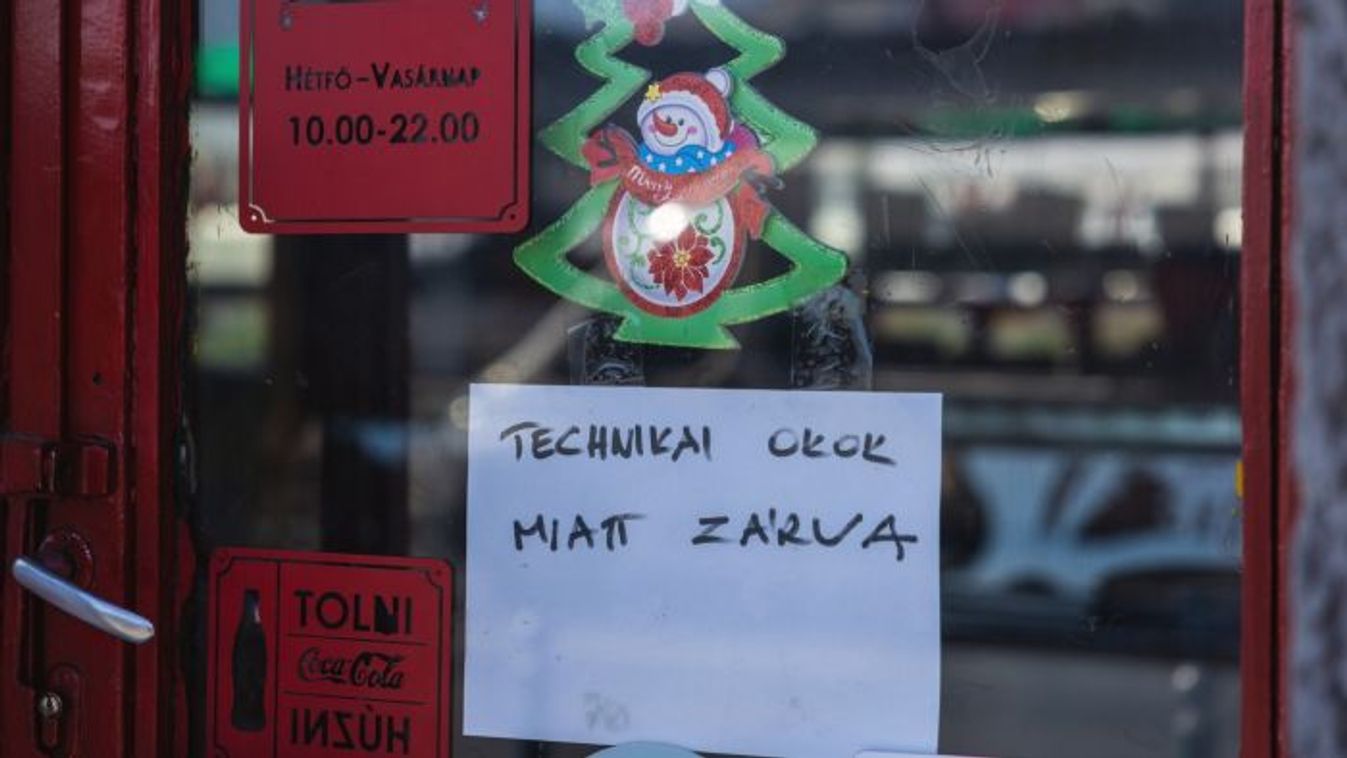 HÉTFŐ-VASÁRNAP
10.00-22.00
Merry
TECHNIKAI OKOK
MIATT ZÁRVA
TOLNI
Coca-Cola
HÚZNI